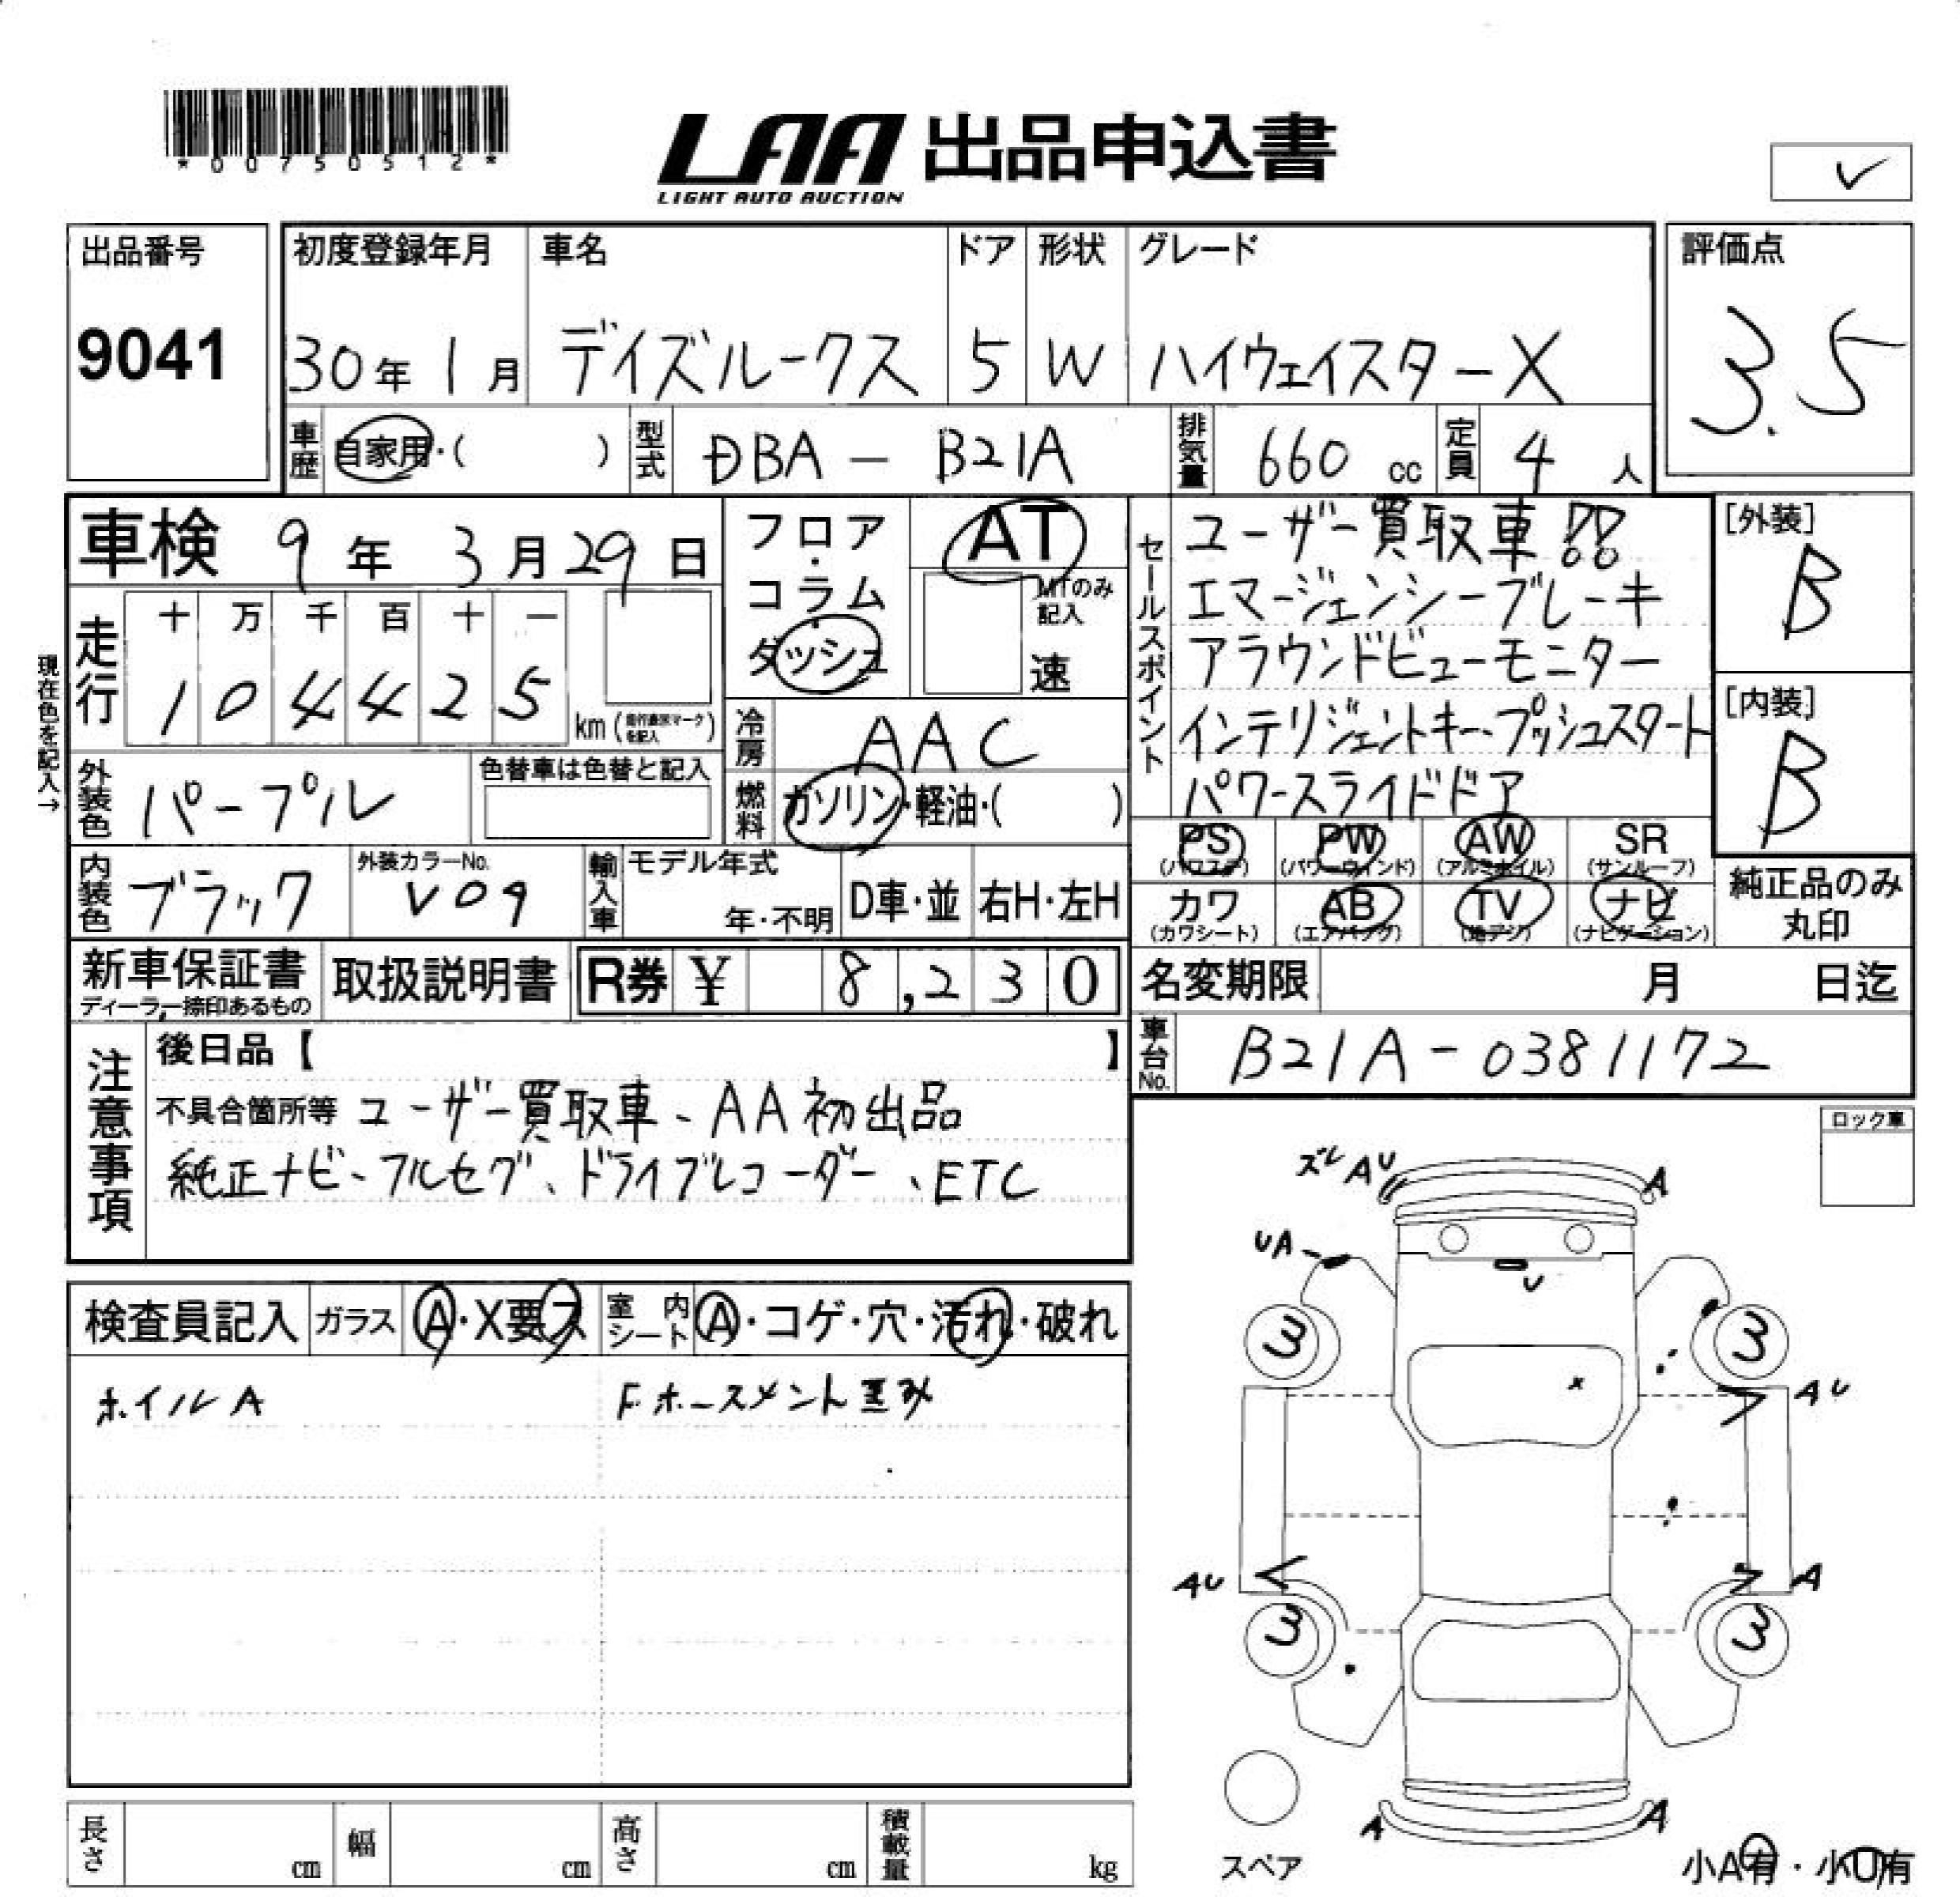 *00750512*
LAA 出品申込書
LIGHT AUTO AUCTION
✓
出品番号
9041
初度登録年月
30年1月
車名
デイズルークス
ドア
5
形状
W
グレード
ハイウェイスターX
評価点
3.5
車歴
自家用・( )
型式
DBA - B21A
排気量
660 cc
定員
4 人
車検 9年3月29日
フロア・コラム・ダッシュ
AT
MTのみ記入
速
現在色を記入→
走行
十 万 千 百 十 一
1 0 4 4 2 5
km (走行表示マークを記入)
冷房
AAC
外装色
パープル
色替車は色替と記入
燃料
ガソリン・軽油・( )
内装色
ブラック
外装カラーNo.
V09
輸入車
モデル年式
年・不明
D車・並
右H・左H
セールスポイント
ユーザー買取車!!
エマージェンシーブレーキ
アラウンドビューモニター
インテリジェントキー、プッシュスタート
パワースライドドア
[外装]
B
[内装]
B
PS (パワステ)
PW (パワーウィンド)
AW (アルミホイル)
SR (サンルーフ)
カワ (カワシート)
AB (エアバッグ)
TV (地デジ)
ナビ (ナビゲーション)
純正品のみ丸印
新車保証書
ディーラー捺印あるもの
取扱説明書
R券 ¥ 8,230
名変期限 月 日迄
車台No.
B21A-0381172
注意事項
後日品【 】
不具合箇所等 ユーザー買取車、AA初出品
純正ナビ、フルセグ、ドライブレコーダー、ETC
ロック車
検査員記入
ガラス
A・X要ス
室内シート
A・コゲ・穴・汚れ・破れ
ホイルA
F.ホースメント歪み
ズレ AU
A
UA
U
3
3
x
AU
AU
A
3
3
A
A
スペア
小A有・小U有
長さ cm
幅 cm
高さ cm
積載量 kg